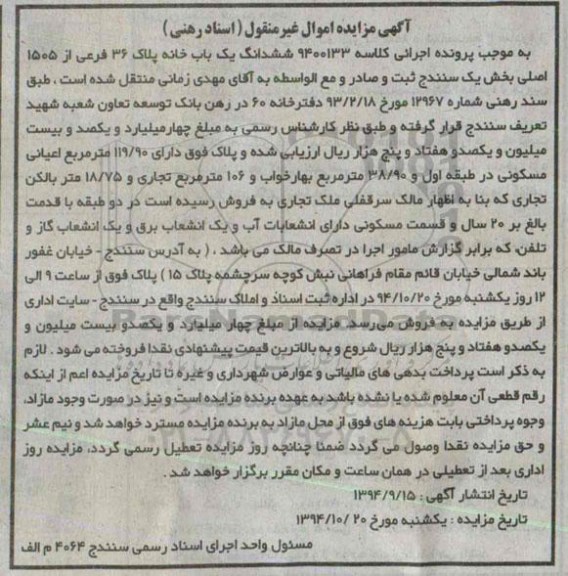 آگهی مزایده اموال غیرمنقول ( اسناد رهنی )
به موجب پرونده اجرائی کلاسه ۹۴۰۰۱۳۳ ششدانگ یک باب خانه پلاک ۳۶ فرعی از ۱۵۰۵
اصلی بخش یک سنندج ثبت و صادر و مع الواسطه به آقای مهدی زمانی منتقل شده است ، طبق
سند رهنی شماره ۱۲۹۶۷ مورخ ۹۳/۲/۱۸ دفترخانه ۶۰ در رهن بانک توسعه تعاون شعبه شهید
تعریف سنندج قرار گرفته و طبق نظر کارشناس رسمی به مبلغ چهارمیلیارد و یکصد و بیست
میلیون و یکصدو هفتاد و پنج هزار ریال ارزیابی شده و پلاک فوق دارای ۱۱۹/۹۰ مترمربع اعیانی
مسکونی در طبقه اول و ۳۸/۹۰ مترمربع بهارخواب و ۱۰۶ مترمربع تجاری و ۱۸/۷۵ متر بالکن
تجاری که بنا به اظهار مالک سرقفلی ملک تجاری به فروش رسیده است در دو طبقه با قدمت
بالغ بر ۲۰ سال و قسمت مسکونی دارای انشعابات آب و یک انشعاب برق و یک انشعاب گاز و
تلفن، که برابر گزارش مامور اجرا در تصرف مالک می باشد ، ( به آدرس سنندج - خیابان غفور
باند شمالی خیابان قائم مقام فراهانی نبش کوچه سرچشمه پلاک ۱۵ ) پلاک فوق از ساعت ۹ الی
۱۲ روز یکشنبه مورخ ۹۴/۱۰/۲۰ در اداره ثبت اسناد و املاک سنندج واقع در سنندج - سایت اداری
از طریق مزایده به فروش می‌رسد. مزایده از مبلغ چهار میلیارد و یکصدو بیست میلیون و
یکصدو هفتاد و پنج هزار ریال شروع و به بالاترین قیمت پیشنهادی نقدا فروخته می شود . لازم
به ذکر است پرداخت بدهی های مالیاتی و عوارض شهرداری و غیره تا تاریخ مزایده اعم از اینکه
رقم قطعی آن معلوم شده یا نشده باشد به عهده برنده مزایده است و نیز در صورت وجود مازاد،
وجوه پرداختی بابت هزینه های فوق از محل مازاد به برنده مزایده مسترد خواهد شد و نیم عشر
و حق مزایده نقدا وصول می گردد ضمنا چنانچه روز مزایده تعطیل رسمی گردد، مزایده روز
اداری بعد از تعطیلی در همان ساعت و مکان مقرر برگزار خواهد شد .
تاریخ انتشار آگهی : ۱۳۹۴/۹/۱۵
تاریخ مزایده : یکشنبه مورخ ۲۰ /۱۳۹۴/۱۰
مسئول واحد اجرای اسناد رسمی سنندج ۴۰۶۴ م الف
ParsNamadData